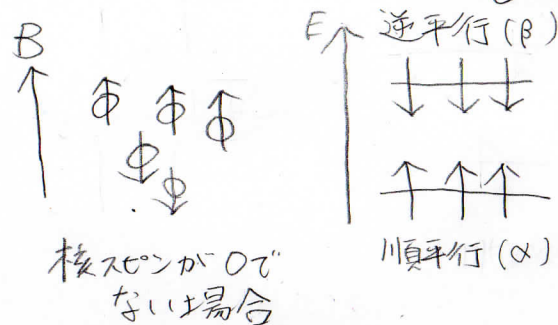 B
核スピンが0で
ない場合
E
逆平行(β)
順平行(α)